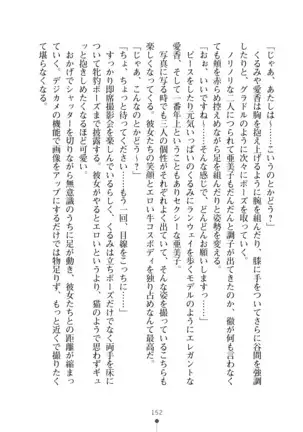 「じゃあ、あたしは～……こういうのとかどう？」
「じゃあ、こんなのとかどう？」
くるみや愛香は胸を抱え上げるように腕を組んだり、膝に手をついてさらに谷間を強調
したりと、グラドルのように次々にポーズを取る。
ノリノリな二人につられて亜美子もだんだんと調子が出てくる。徹が何も言わなくて
も頬を赤らめながら控えめながらもポーズと姿勢を変える。
「おお、いいですね～……そんな感じで、どんどんお願いします……」
ピースをしたり元気いっぱいのくるみにランウェイを歩くモデルのようにエレガントな
愛香、そして一番年上ということもあってかセクシーな亜美子。
写真に写る時にも三人の個性がそれぞれよく出ていて、そんな姿を撮っているこちらも
楽しくなってくる。彼女たちの笑顔とエロい牛コスボディを独り占めなんて最高だ。
「ちょ、ちょっと待ってください……もう一回、目線をこっちに……」
すっかり即席撮影会を楽しんでいると、くるみは立ちポーズだけでなく両手を床に
ついて牝豹ポーズまで披露する。彼女がやるとエロいというより、猫のようで思わずギュ
ッと抱きしめたくなるほど可愛い。
おかげでシャッターを切りながら無意識のうちに足が動き、彼女たちとの距離が縮まっ
てくる。デジカメの機能で画像をアップにするだけでは物足りず、もっと近くで撮りたく
て堪らなくなる。
152